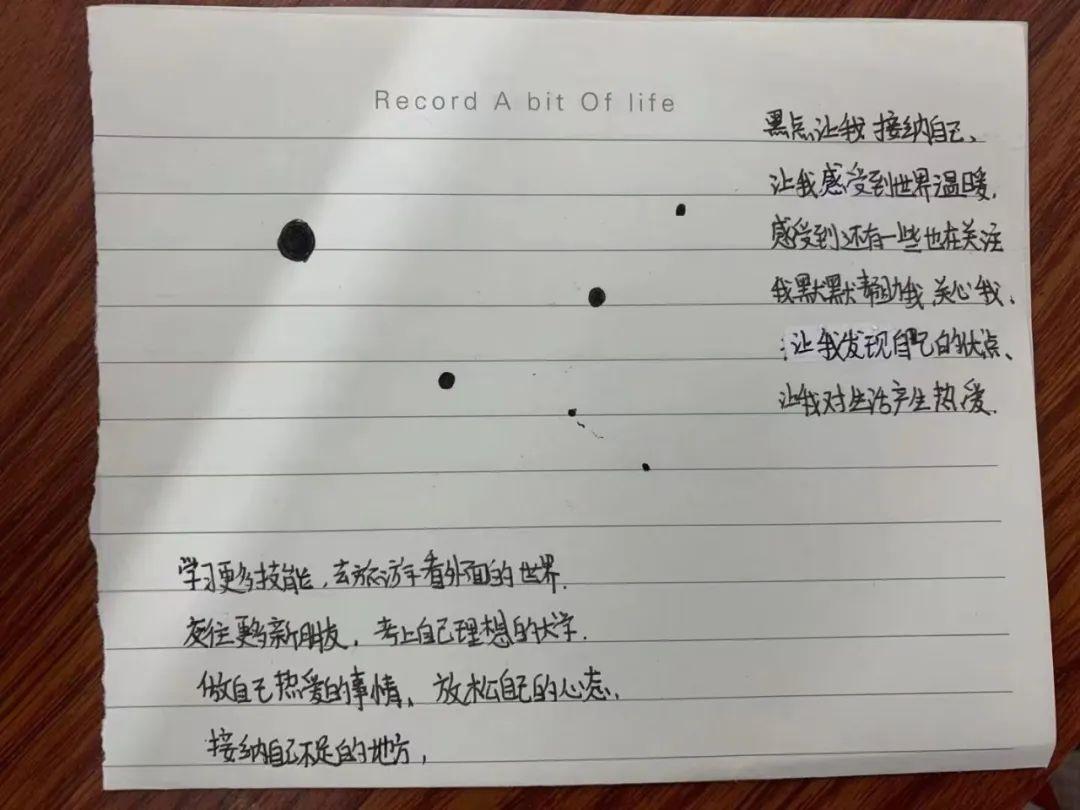 Record A bit Of life
黑点让我接纳自己、
让我感受到世界温暖,
感受到还有一些也在关注
我默默帮助我,关心我、
;让我发现自己的优点、
让我对生活产生热爱.
学习更多技能,去旅游看外面的世界.
交往更多新朋友,考上自己理想的大学.
做自己热爱的事情、放松自己的心态.
接纳自己不足的地方,